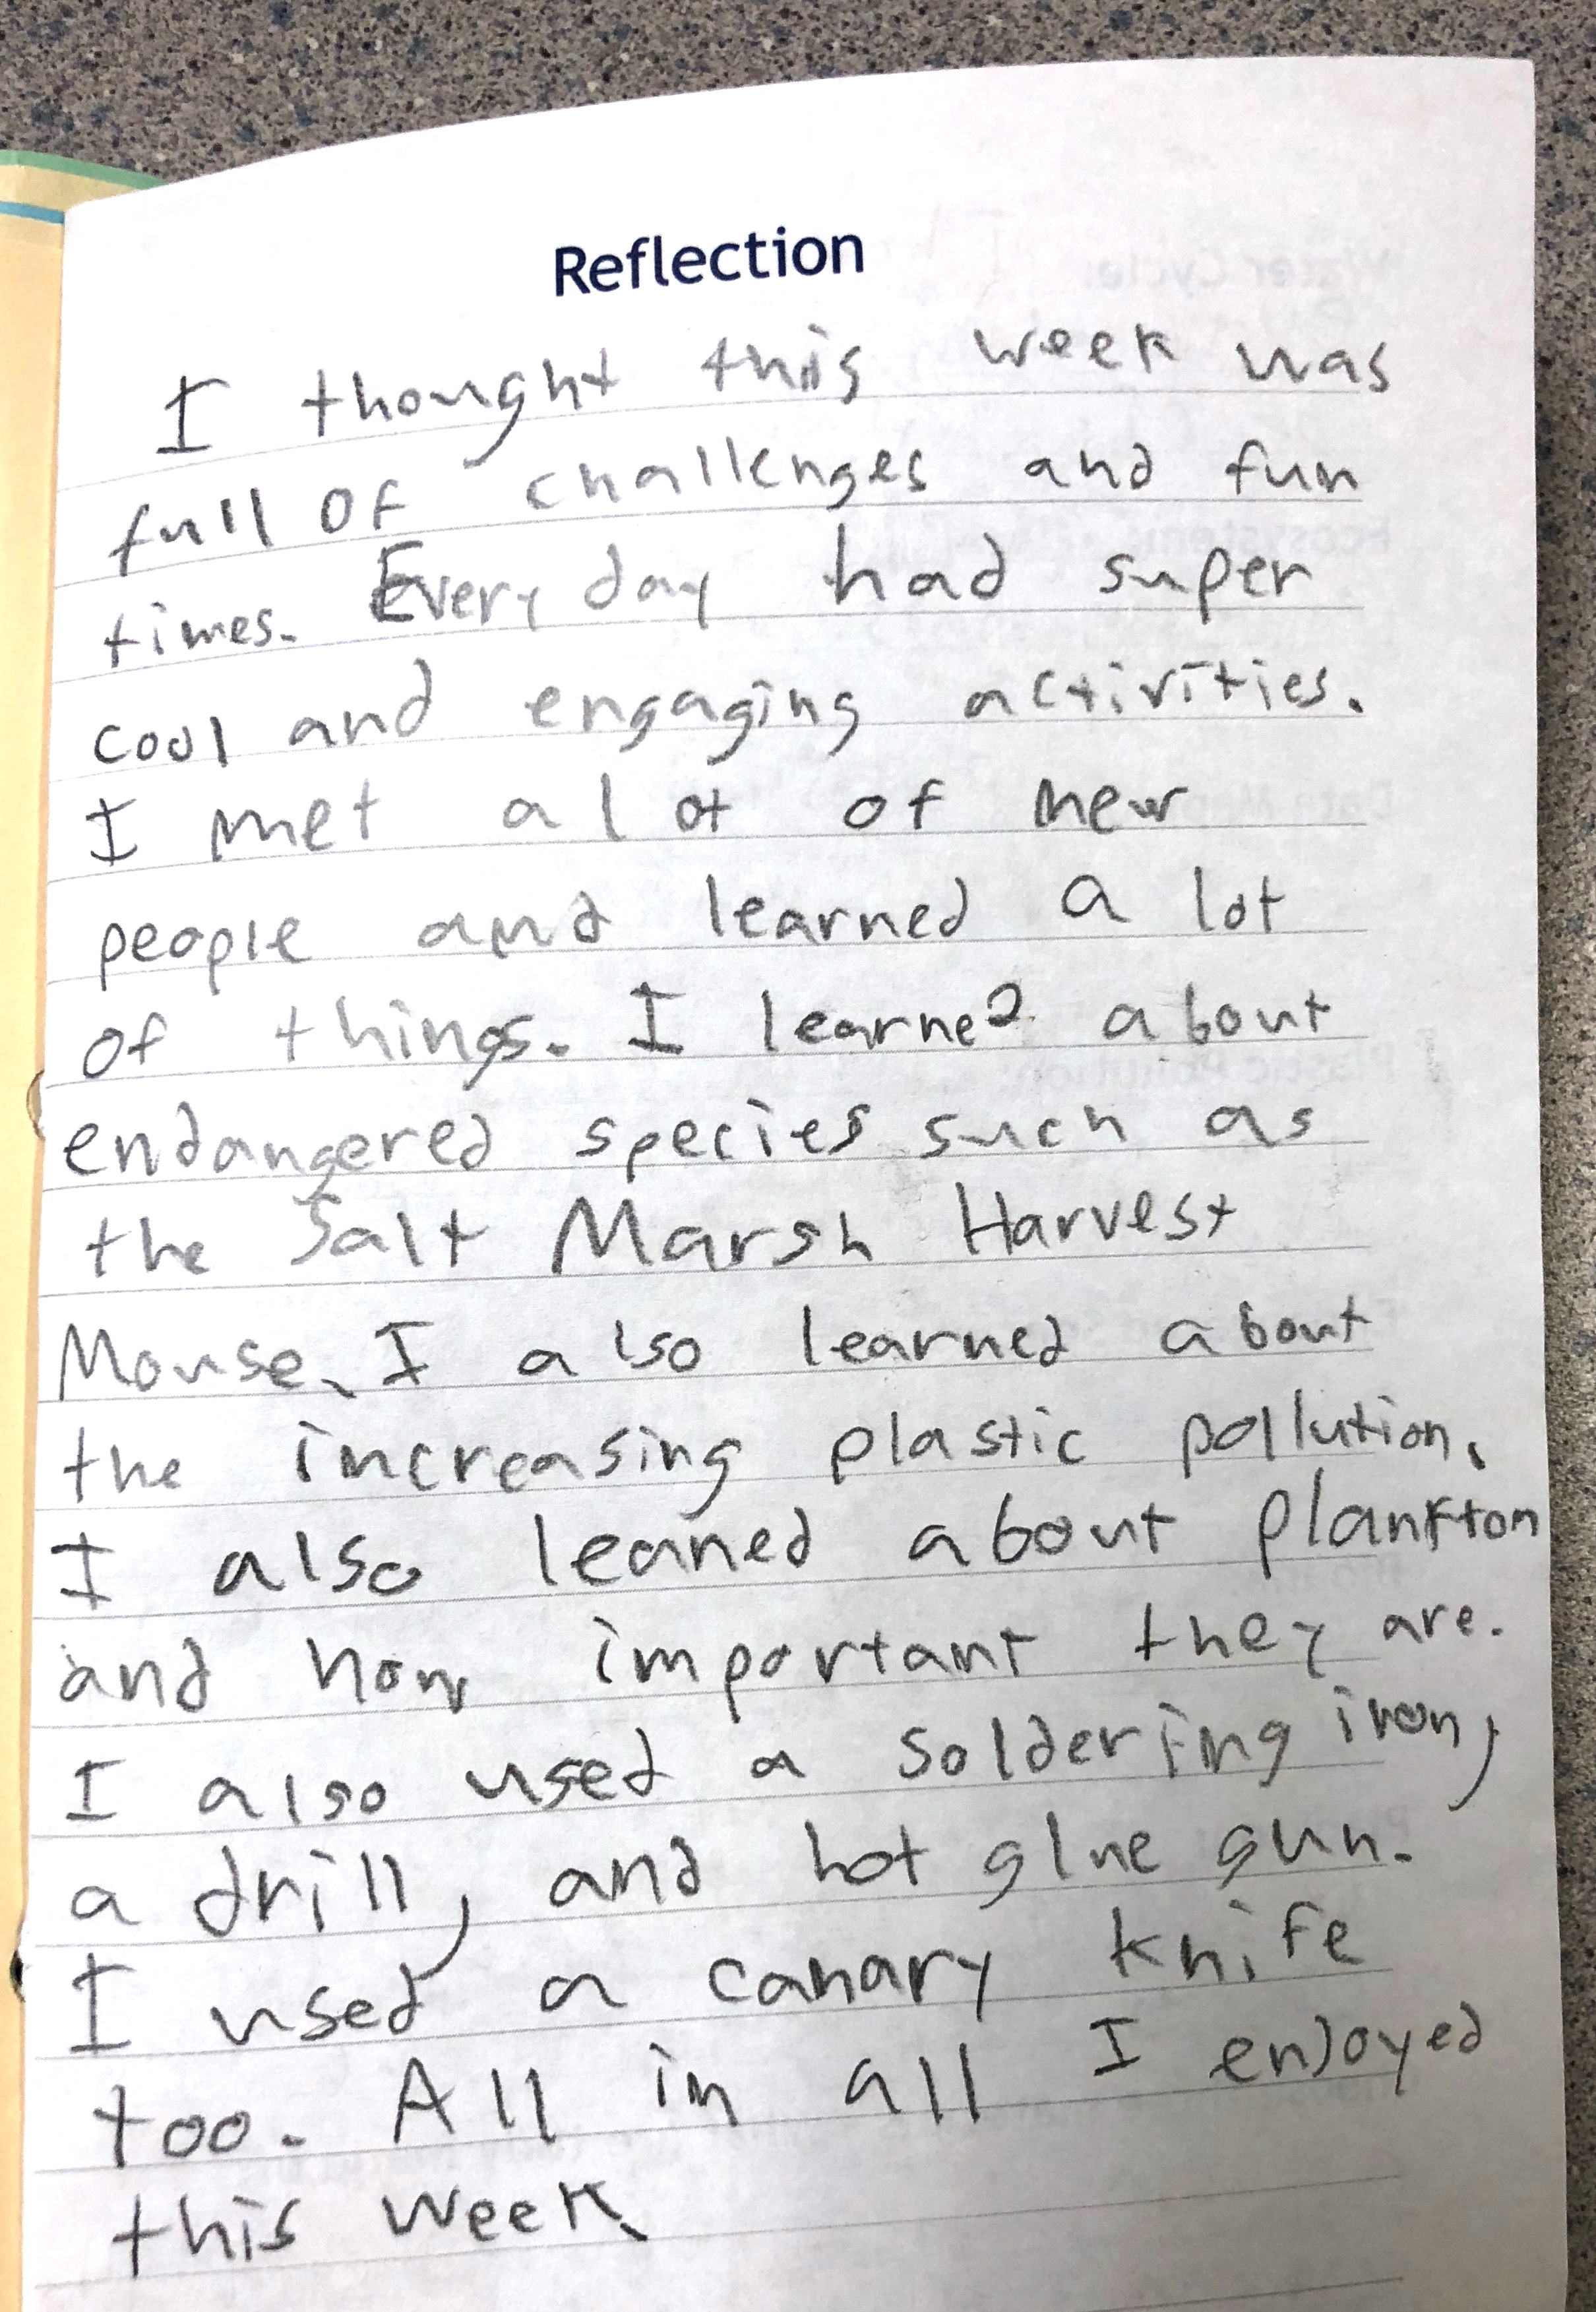 Reflection
I thought this week was
full of challenges and fun
times. Every day had super
cool and engaging activities.
I met a lot of new
people and learned a lot
of things. I learned about
endangered species such as
the Salt Marsh Harvest
Mouse. I also learned about
the increasing plastic pollution.
I also leaned about plankton
and how important they are.
I also used a soldering iron,
a drill, and hot glue gun.
I used a canary knife
too. All in all I enjoyed
this week.